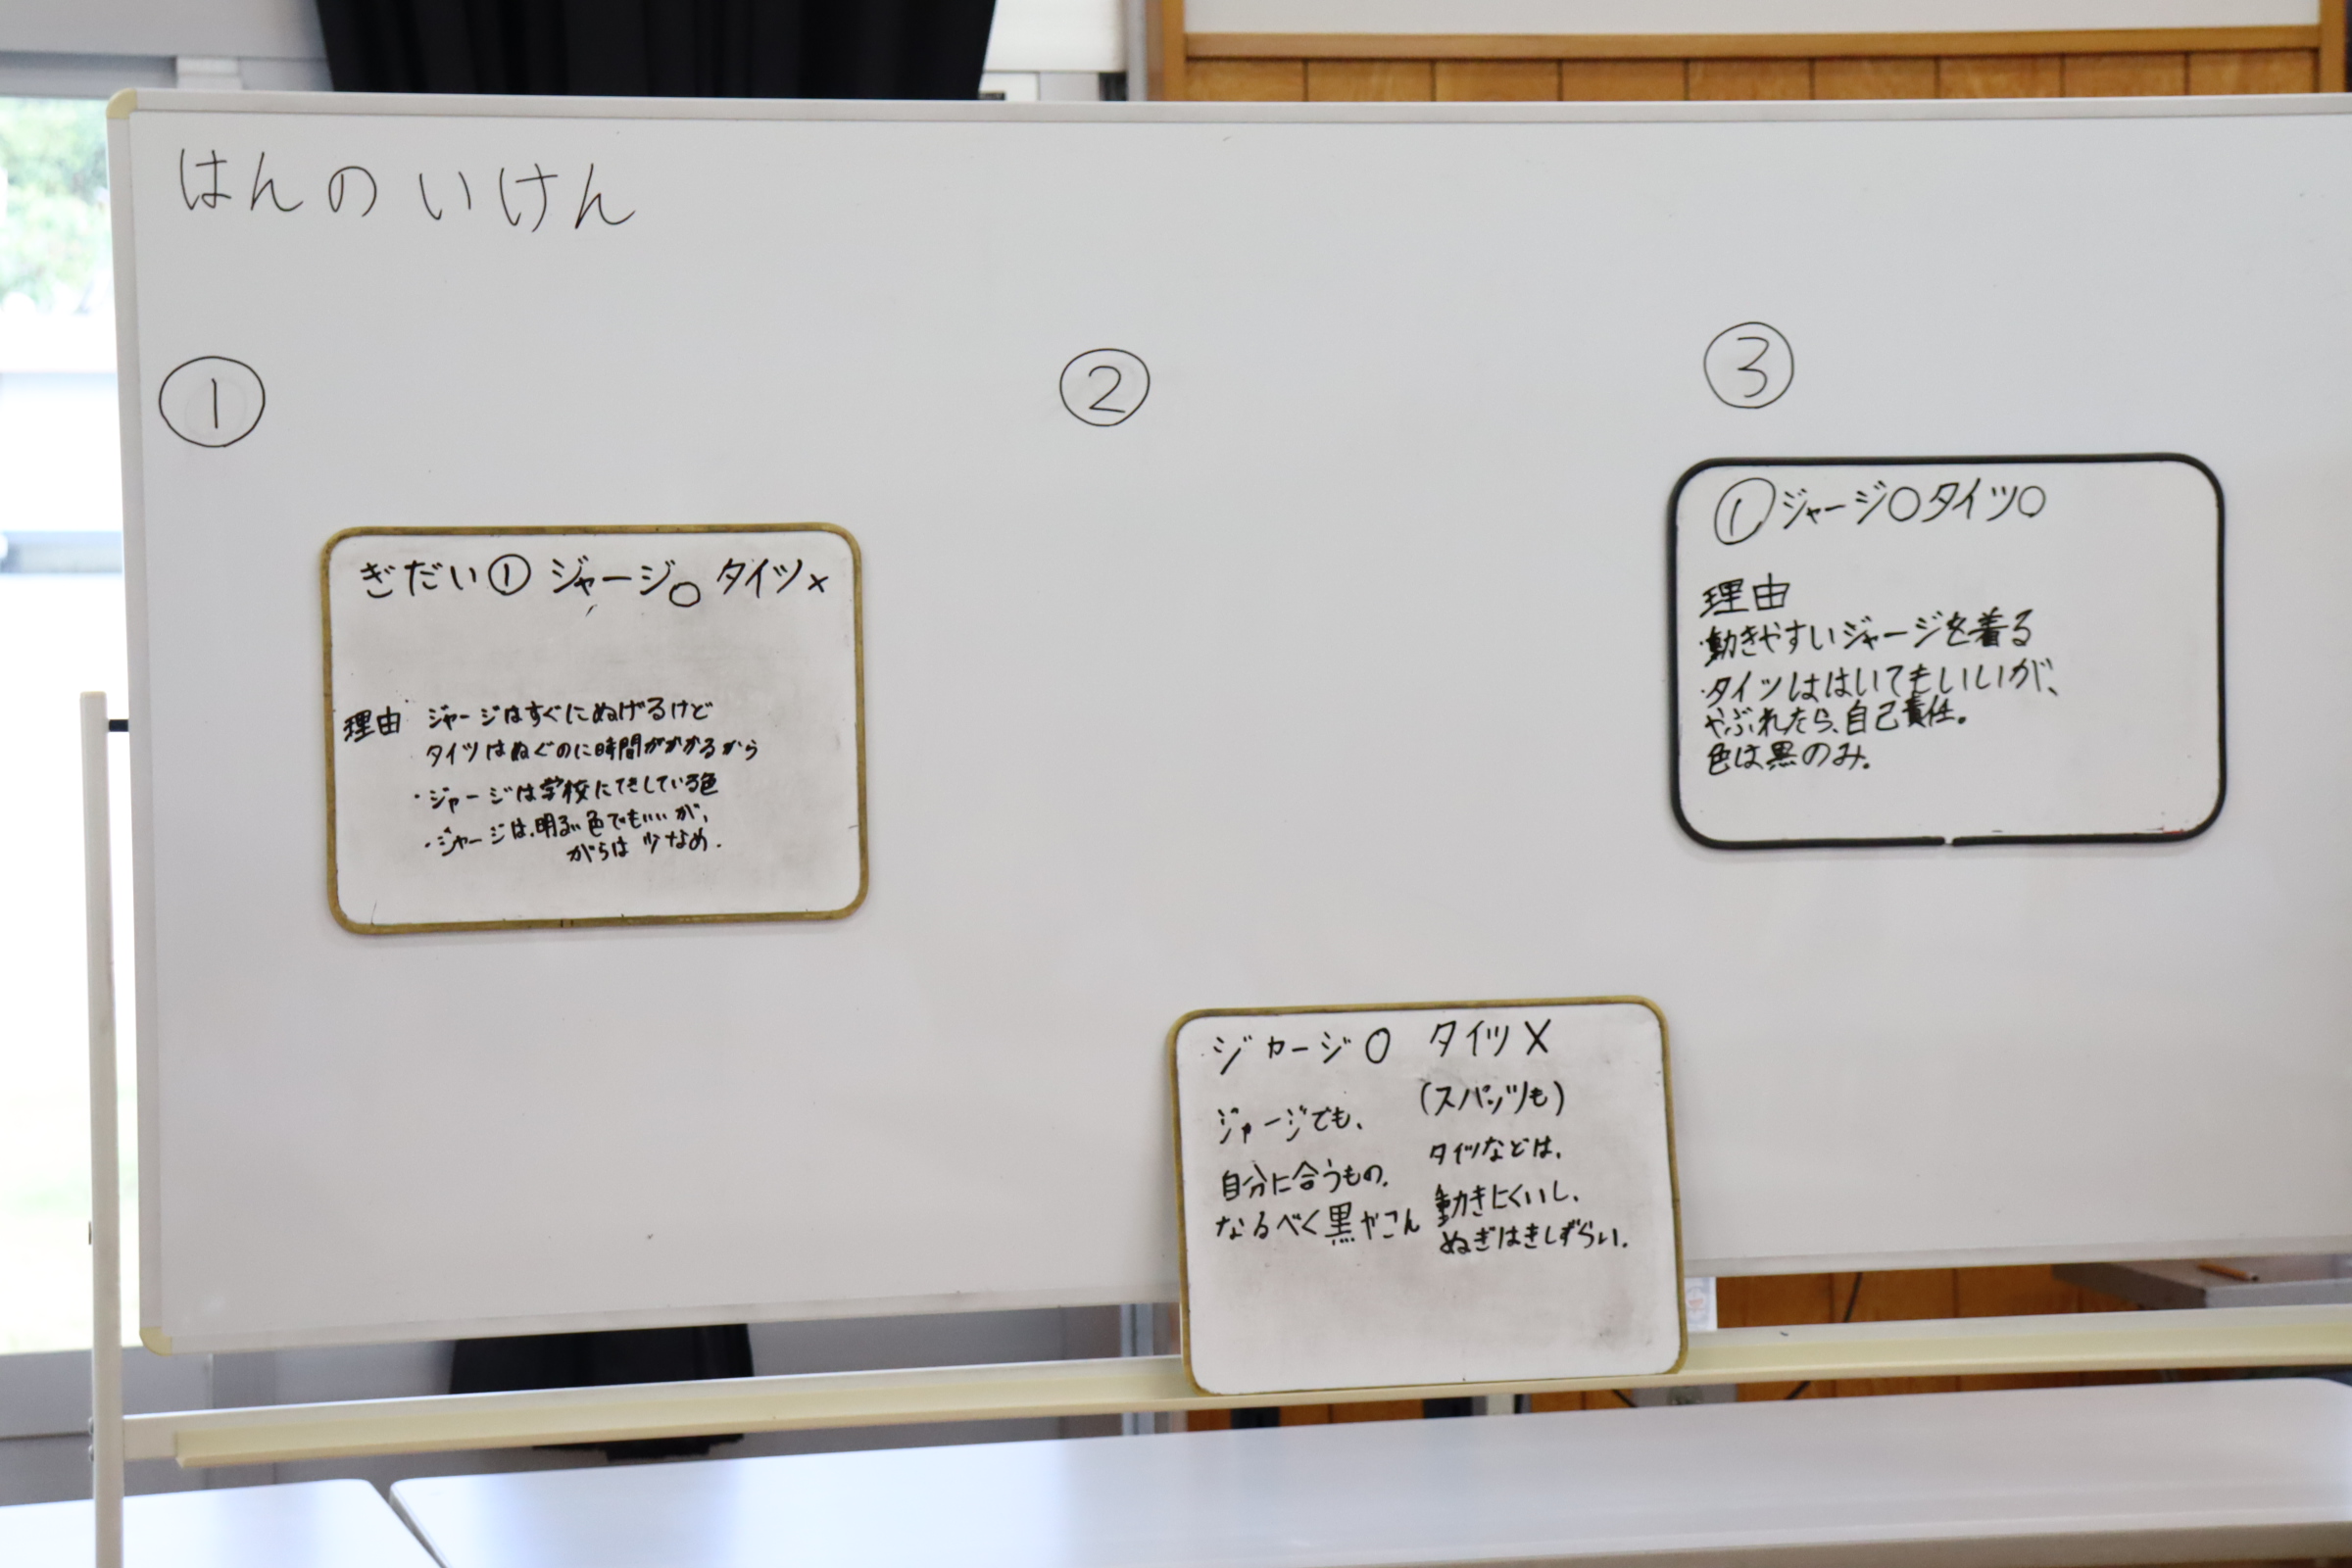 はんのいけん
①
ぎだい① ジャージ○ タイツ×
理由 ジャージはすぐにぬげるけど
タイツはぬぐのに時間がかかるから
・ジャージは学校にてきしている色
・ジャージは、明るい色でもいいが、
がらは少なめ。
②
ジャージ○ タイツ×
(スパッツも)
ジャージでも、
自分に合うもの。
なるべく黒やこん
タイツなどは、
動きにくいし、
ぬぎはきしずらい。
③
①ジャージ○タイツ○
理由
・動きやすいジャージを着る
・タイツははいてもいいが、
やぶれたら、自己責任。
色は黒のみ。